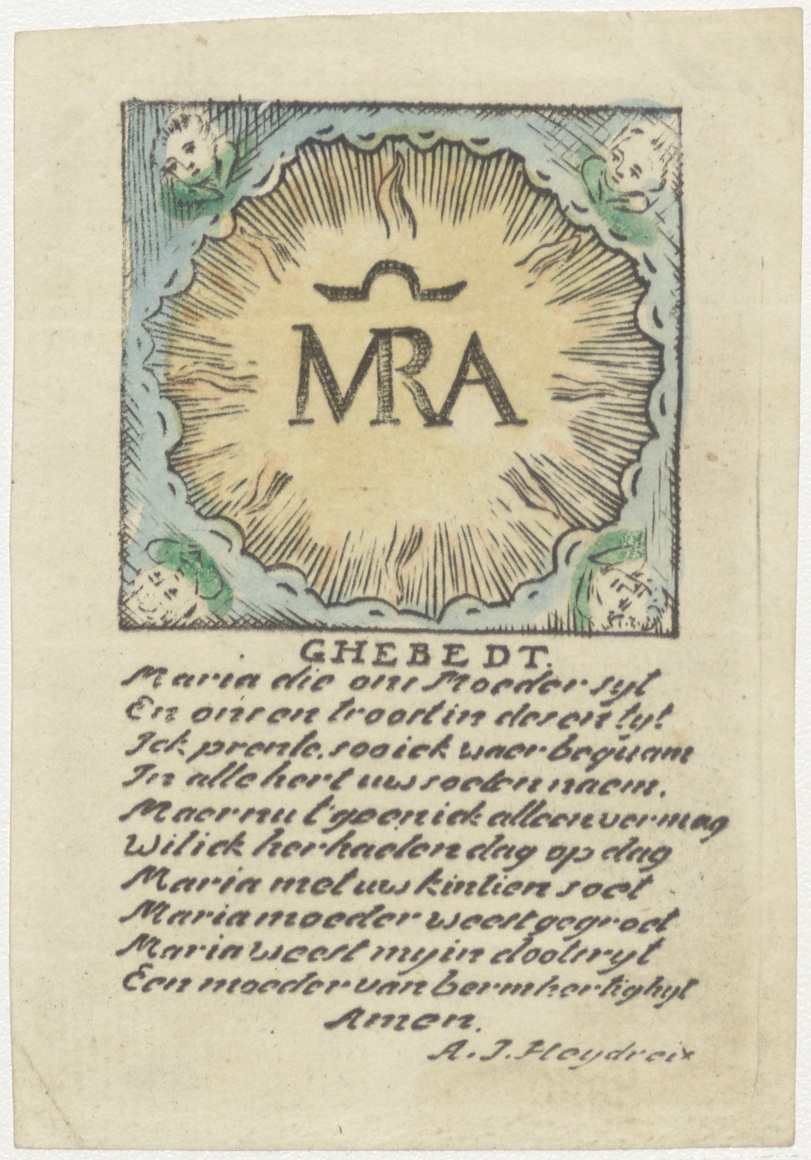 MRA
GHEBEDT.
Maria die ons Moeder syt
En onsen troost in desen tyt
Ick prente, soo ick waer bequam
In alle hert uw soeten naem.
Maer nu t'geen ick alleen vermag
Wil ick herhaelen dag op dag
Maria met uw kintien soet
Maria moeder weest gegroet
Maria weest my in doots ryt
Een moeder van bermhertighyt
Amen.
A. J. Heydreix